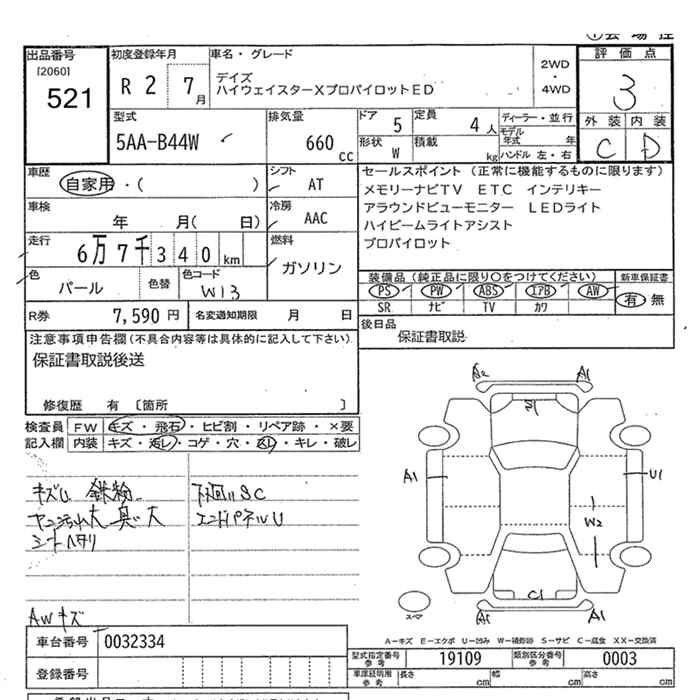 出品番号
[2060]
521
初度登録年月
R 2 7月
車名・グレード
デイズ
ハイウェイスターXプロパイロットED
2WD
・
4WD
評価点
3
外装 内装
C D
型式
5AA-B44W
排気量
660 cc
ドア 5
定員 4人
形状 W
積載 kg
ディーラー・並行
モデル年式 年
ハンドル 左・右
車歴
自家用・( )
シフト
AT
車検
年 月( 日)
冷房
AAC
走行
6万7千340km
燃料
ガソリン
色
パール
色替
色コード
W13
R券 7,590円
名変通知期限 月 日
セールスポイント (正常に機能するものに限ります)
メモリーナビTV ETC インテリキー
アラウンドビューモニター LEDライト
ハイビームライトアシスト
プロパイロット
装備品(純正品に限り○をつけてください)
PS PW ABS エアB AW
SR ナビ TV カワ
新車保証書
有 無
後日品
保証書取説
注意事項申告欄(不具合内容等は具体的に記入して下さい)
保証書取説後送
修復歴 有 〔箇所 〕
検査員記入欄
FW キズ・飛石・ヒビ割・リペア跡・×要
内装 キズ・汚レ・コゲ・穴・スレ・キレ・破レ
キズム 鉄粉
ヤニ汚れ大 臭い大
シートヘタリ
下廻りSC
エンドパネルU
AWキズ
A2 A1
S1
A1 U1
W2
C1
A1 A1
スペア
A－キズ E－エクボ U－凹み W－補修跡 S－サビ C－腐食 XX－交換済
車台番号 0032334
登録番号
型式指定番号 参考 19109
類別区分番号 参考 0003
車庫証明用 参考 長さ cm 幅 cm 高さ cm